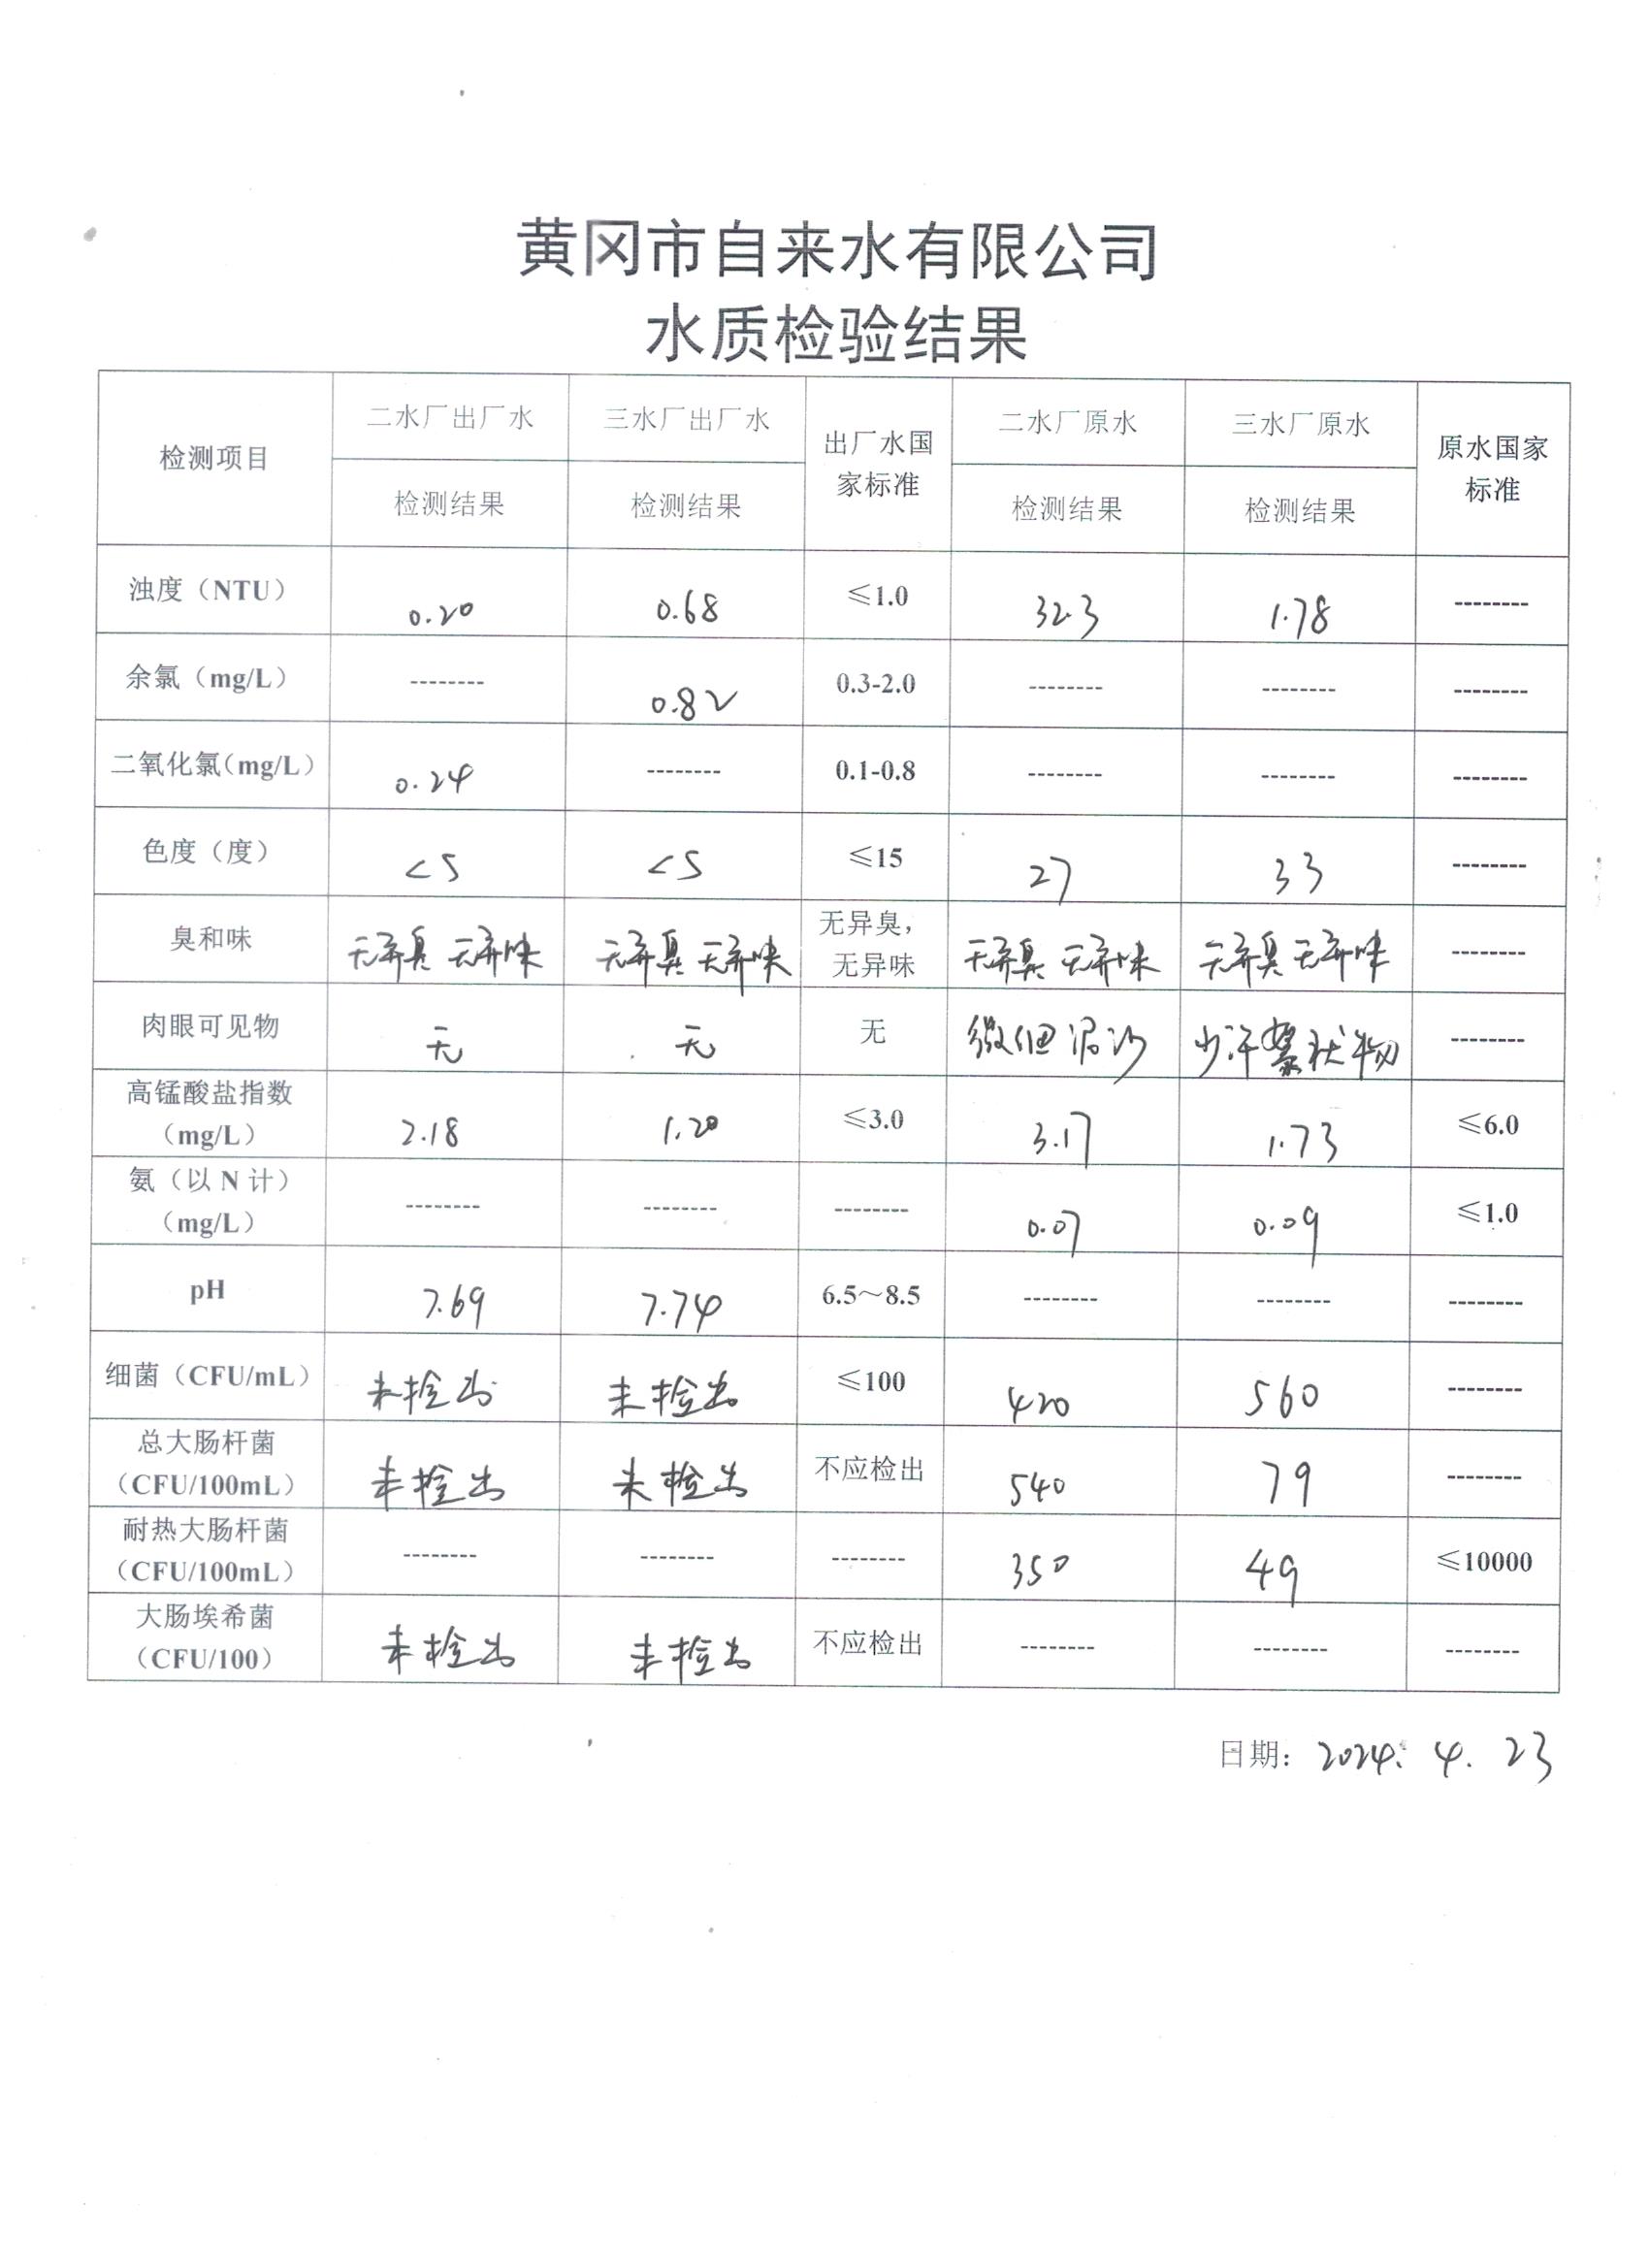 黄冈市自来水有限公司
水质检验结果
检测项目 二水厂出厂水 三水厂出厂水 出厂水国家标准 二水厂原水 三水厂原水 原水国家标准
检测结果 检测结果 检测结果 检测结果
浊度（NTU） 0.20 0.68 ≤1.0 32.3 1.78 --------
余氯（mg/L） -------- 0.82 0.3-2.0 -------- -------- --------
二氧化氯（mg/L） 0.24 -------- 0.1-0.8 -------- -------- --------
色度（度） <5 <5 ≤15 27 33 --------
臭和味 无异臭 无异味 无异臭 无异味 无异臭，无异味 无异臭 无异味 无异臭 无异味 --------
肉眼可见物 无 无 无 微细泥沙 少许絮状物 --------
高锰酸盐指数（mg/L） 2.18 1.20 ≤3.0 3.17 1.73 ≤6.0
氨（以 N 计）（mg/L） -------- -------- -------- 0.07 0.09 ≤1.0
pH 7.69 7.74 6.5～8.5 -------- -------- --------
细菌（CFU/mL） 未检出 未检出 ≤100 420 560 --------
总大肠杆菌（CFU/100mL） 未检出 未检出 不应检出 540 79 --------
耐热大肠杆菌（CFU/100mL） -------- -------- -------- 350 49 ≤10000
大肠埃希菌（CFU/100） 未检出 未检出 不应检出 -------- -------- --------
日期：2024.4.23